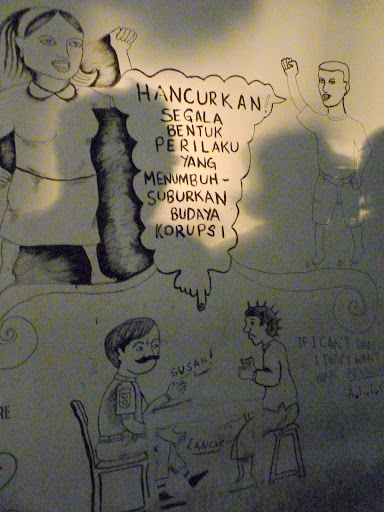 HANCURKAN
SEGALA
BENTUK
PERILAKU
YANG
MENUMBUH-
SUBURKAN
BUDAYA
KORUPSI
SUSAH!
LANCAR
IF I CAN'T DANCE
I DON'T WANT
YOUR
RE